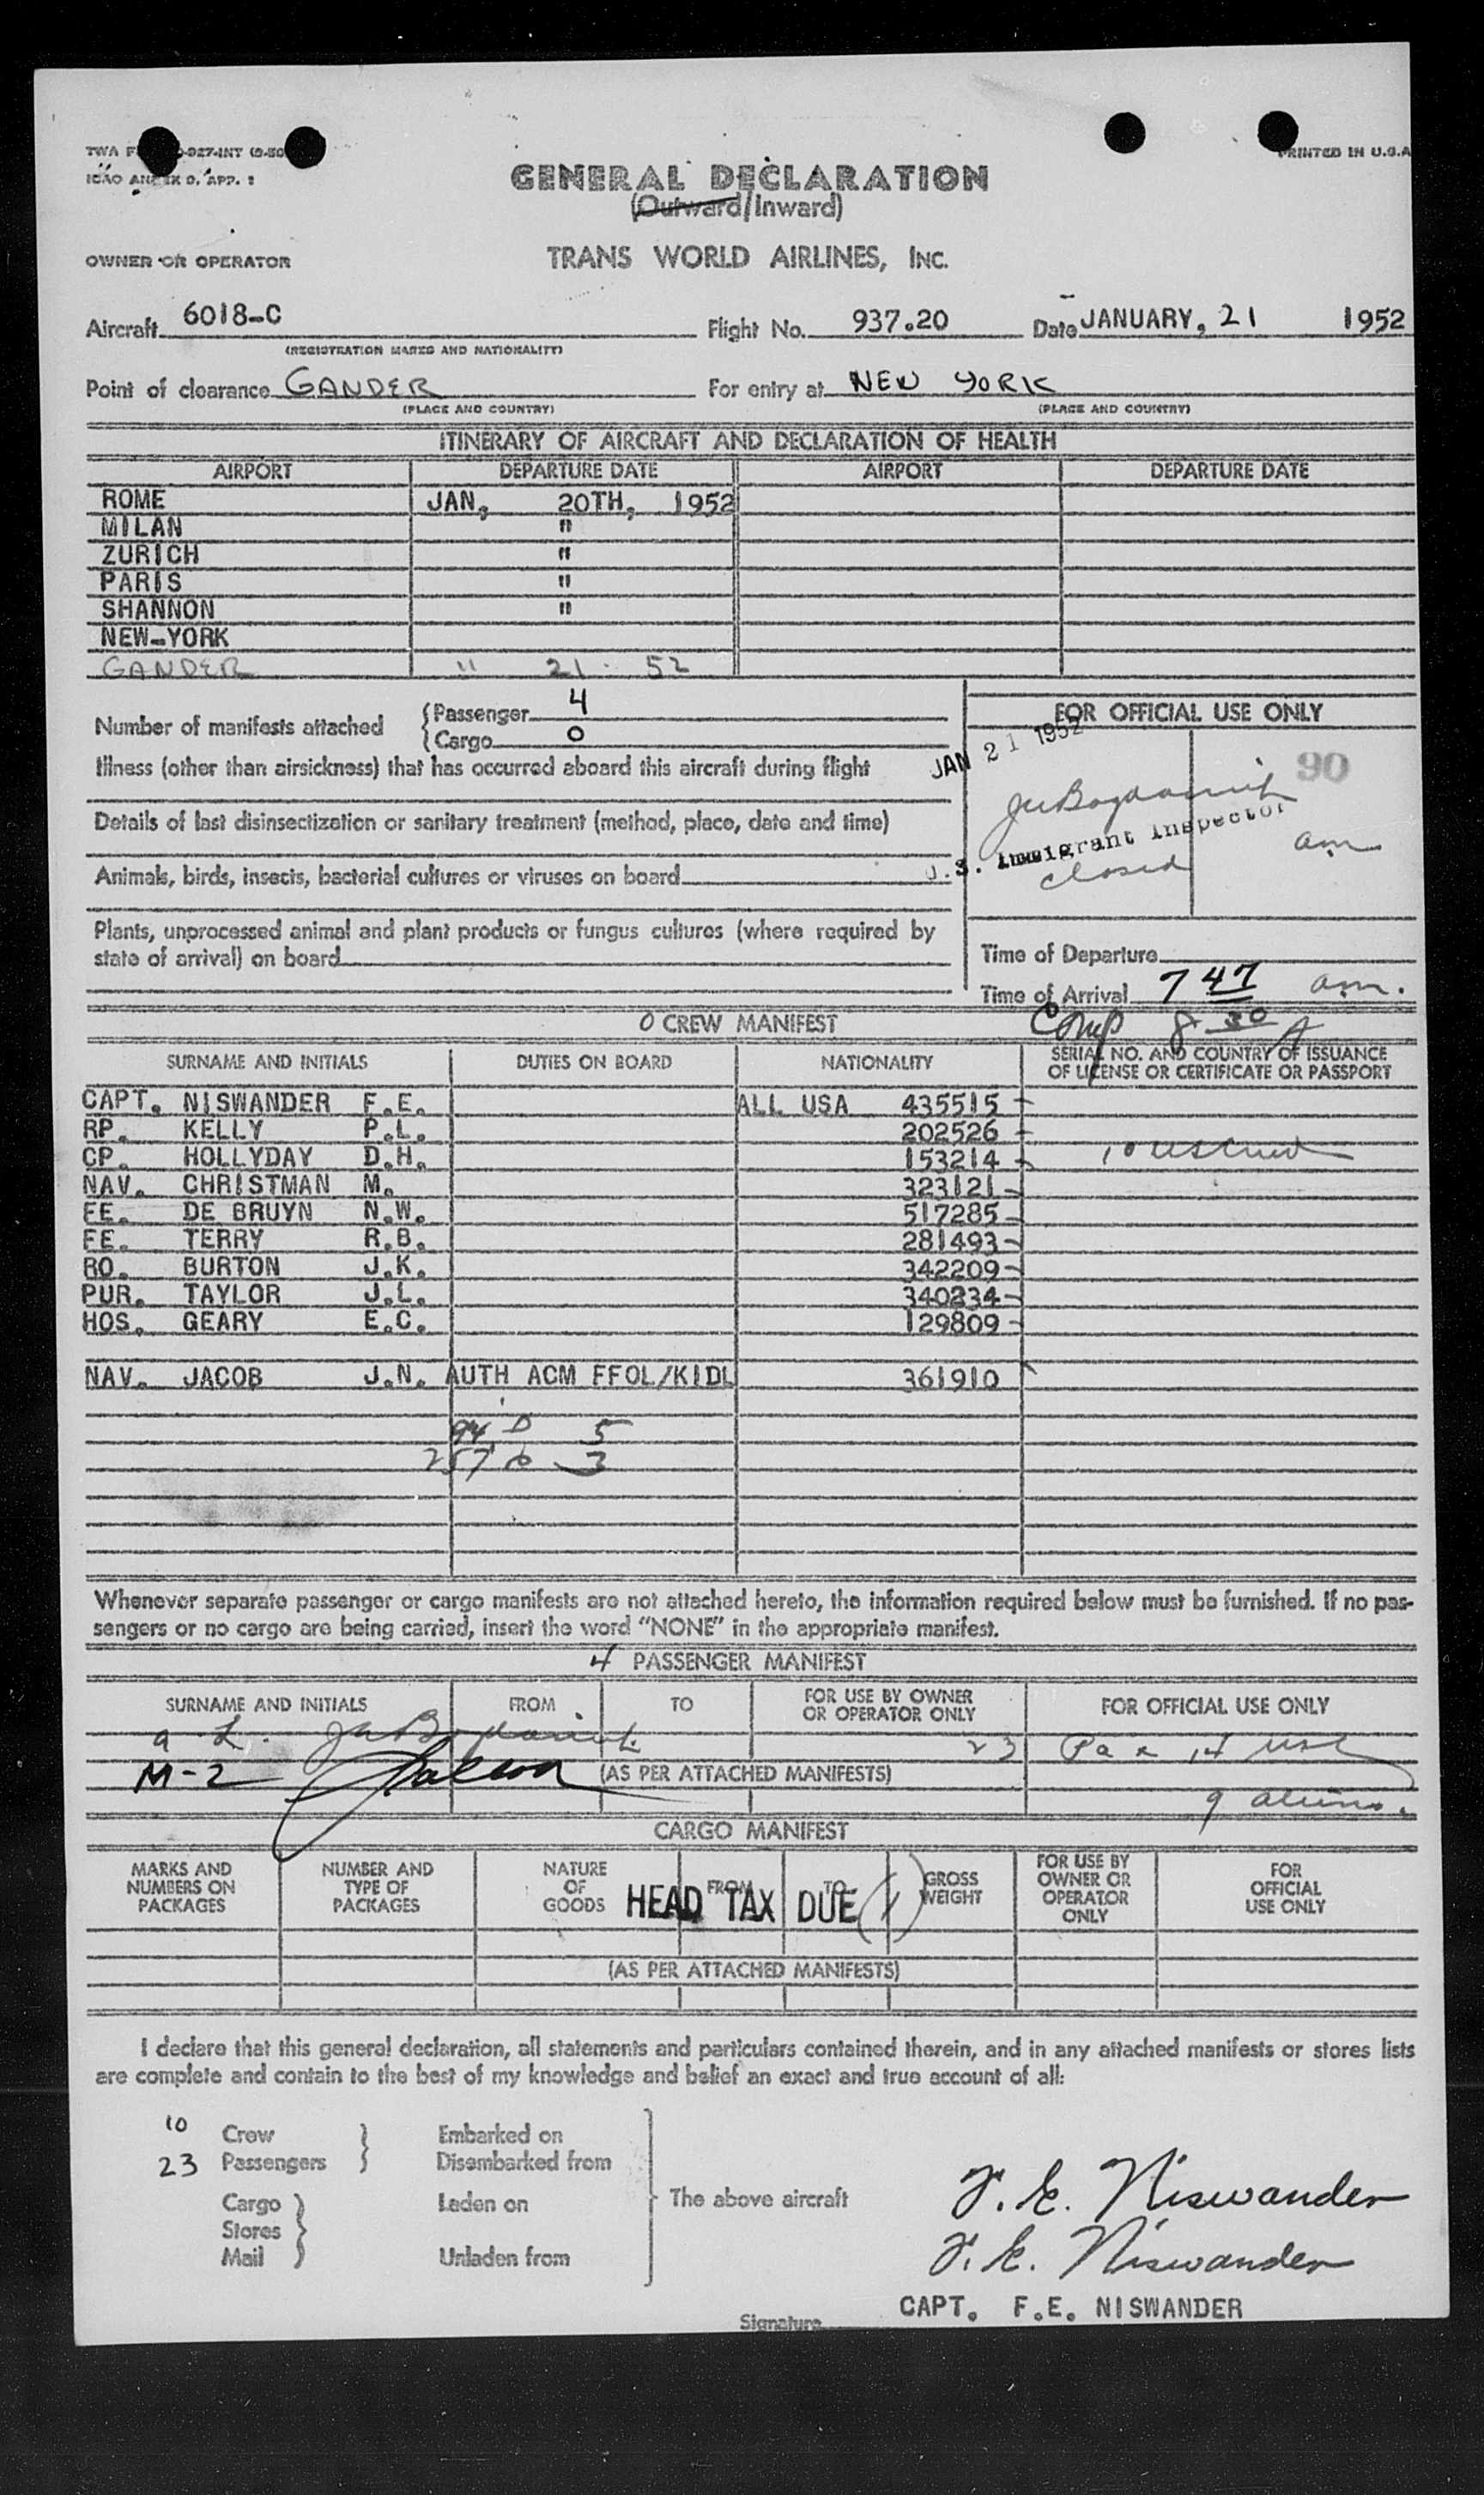 TWA F -927-INT
PRINTED IN U.S.A
ICAO ANNEX 9, APP. 1
GENERAL DECLARATION
(Outward/Inward)
OWNER OR OPERATOR
TRANS WORLD AIRLINES, INC.
Aircraft 6018-C Flight No. 937.20 Date JANUARY, 21 1952
(REGISTRATION MARKS AND NATIONALITY)
Point of clearance GANDER For entry at NEW YORK
(PLACE AND COUNTRY) (PLACE AND COUNTRY)
ITINERARY OF AIRCRAFT AND DECLARATION OF HEALTH
AIRPORT DEPARTURE DATE AIRPORT DEPARTURE DATE
ROME JAN, 20TH, 1952
MILAN "
ZURICH "
PARIS "
SHANNON "
NEW-YORK
GANDER " 21 52
Number of manifests attached
{Passenger 4
{Cargo 0
FOR OFFICIAL USE ONLY
JAN 21 1952
90
Illness (other than airsickness) that has occurred aboard this aircraft during flight
Details of last disinsectization or sanitary treatment (method, place, date and time)
U.S. Immigrant Inspector
am
closed
Animals, birds, insects, bacterial cultures or viruses on board
Plants, unprocessed animal and plant products or fungus cultures (where required by
state of arrival) on board
Time of Departure
Time of Arrival 7 47 am.
Comp 8 30 A
0 CREW MANIFEST
SURNAME AND INITIALS DUTIES ON BOARD NATIONALITY SERIAL NO. AND COUNTRY OF ISSUANCE
OF LICENSE OR CERTIFICATE OR PASSPORT
CAPT. NISWANDER F.E. ALL USA 435515
RP. KELLY P.L. 202526
CP. HOLLYDAY D.H. 153214
NAV. CHRISTMAN M. 323121
FE. DE BRUYN N.W. 517285
FE. TERRY R.B. 281493
RO. BURTON J.K. 342209
PUR. TAYLOR J.L. 340234
HOS. GEARY E.C. 129809
NAV. JACOB J.N. AUTH ACM FFOL/KIDL 361910
94 D 5
257 3
Whenever separate passenger or cargo manifests are not attached hereto, the information required below must be furnished. If no pas-
sengers or no cargo are being carried, insert the word "NONE" in the appropriate manifest.
4 PASSENGER MANIFEST
SURNAME AND INITIALS FROM TO FOR USE BY OWNER
OR OPERATOR ONLY FOR OFFICIAL USE ONLY
23 Pax 14 USC
M-2 (AS PER ATTACHED MANIFESTS)
9 aliens.
CARGO MANIFEST
MARKS AND
NUMBERS ON
PACKAGES
NUMBER AND
TYPE OF
PACKAGES
NATURE
OF
GOODS
FROM
TO
GROSS
WEIGHT
FOR USE BY
OWNER OR
OPERATOR
ONLY
FOR
OFFICIAL
USE ONLY
HEAD TAX DUE ( )
(AS PER ATTACHED MANIFESTS)
I declare that this general declaration, all statements and particulars contained therein, and in any attached manifests or stores lists
are complete and contain to the best of my knowledge and belief an exact and true account of all:
10 Crew } Embarked on
23 Passengers } Disembarked from
Cargo } Laden on The above aircraft
Stores
Mail } Unladen from
F. E. Niswander
F. E. Niswander
CAPT. F.E. NISWANDER
Signature